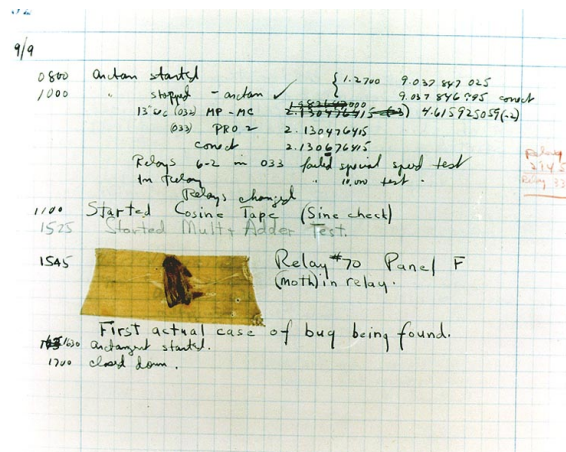 9/9
0800 Antan started { 1.2700 9.037 847 025
1000 " stopped - antan ✓ 9.037 846 995 conect
13"uc (032) MP - MC 2.130476415 (-3) 4.615925059(-2)
(033) PRO 2 2.130476415
conect 2.130676415
Relays 6-2 in 033 failed special speed test
In Relay " 10.000 test.
Relays changed
1100 Started Cosine Tape (Sine check)
1525 Started Mult + Adder Test.
1545 Relay #70 Panel F
(moth) in relay.
First actual case of bug being found.
1630 antangent started.
1700 closed down.
Relay
2145
Relay 33